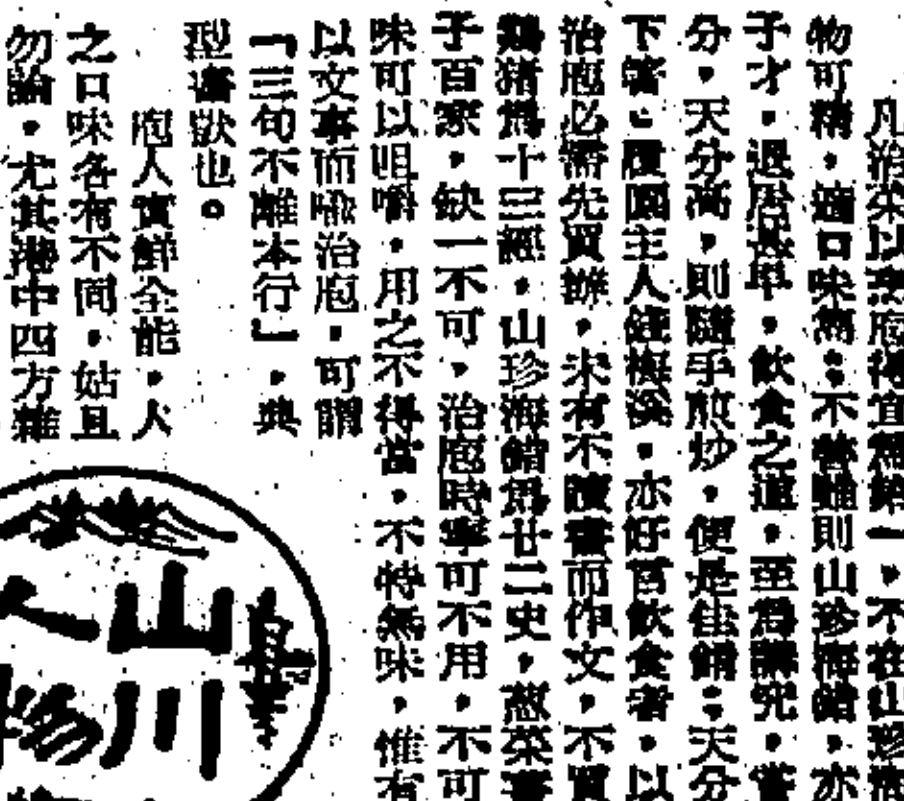 凡治菜以烹庖得宜爲第一,不在山珍海
物可精,適口味爲。不善雖則山珍海錯,亦
子才,退居,飲食之道,至爲講究,嘗
分,天分高,則隨手煎炒,便是佳餚;天分
下箸。履園主人錢梅溪,亦好言飲食者,以
治庖必需先買辦,未有不讀書而作文,不買
鷄猪爲十三經,山珍海錯爲廿二史,葱菜
子百家,缺一不可,治庖時寧可不用,不可
味可以咀嚼,用之不得當,不特無味,惟有
以文事而喻治庖,可謂
『三句不離本行』,典
型
歟也。
庖人實鮮全能,人
之口味各有不同,姑且
勿論,尤其港中四方雜
山川
人物